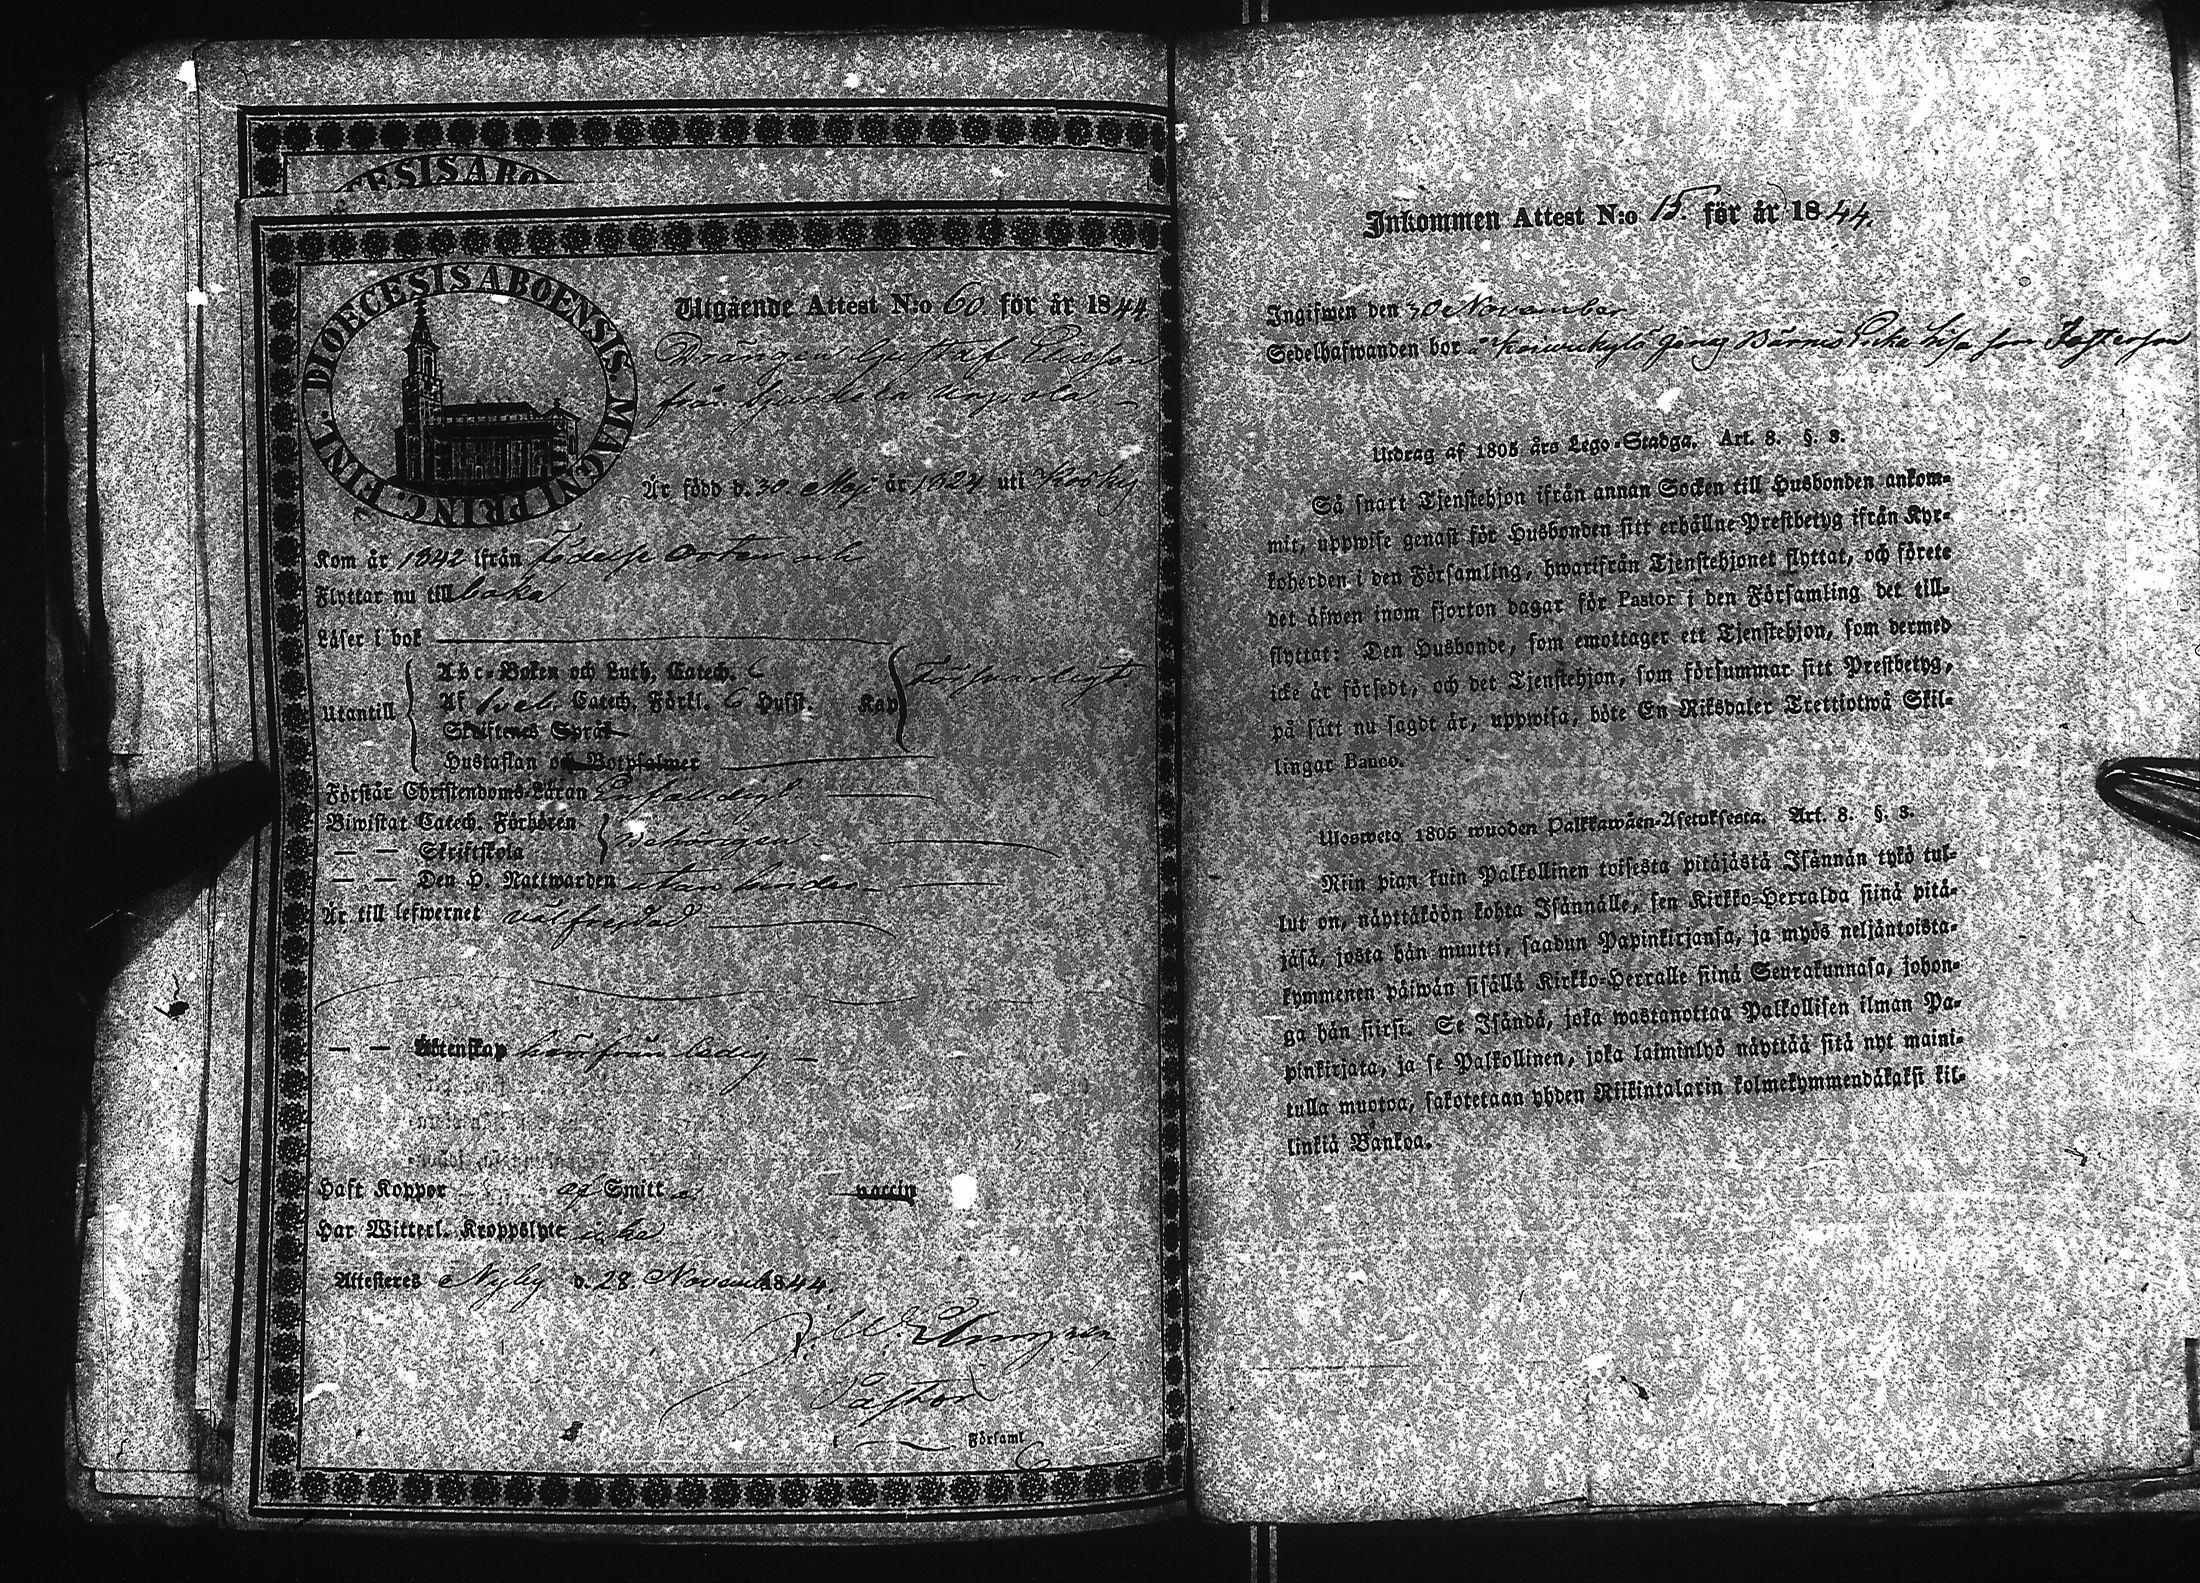 DIOECESIS ABO
DIOECESIS ABOENSIS MAGNI PRINC. FINL.
Utgående Attest N:o 60 för år 1844.
Drängen Gustaf Ericsson
från
Är född d. 30 Maji år 1824 uti Koskis
Kom år 1842 ifrån födelse orten och
Flyttar nu tillbaka
Läser i bok
Utantill
Abc-Boken och Luth. Catech. 6
Af Sveb. Catech. Förkl. 6 Hufst. Kap
Försvarligt
Skriftenes Språk
Hustaflan och Botpsalmer
Förstår Christendoms-Läran Enfaldigt
Biwistat Catech. Förhören
— — Skriftskola
Behörigen
— — Den H. Nattwarden utan hinder
Är till lefwernet välfrejdad
— — Äktenskap härifrån ledig
Haft Koppor af Smitta vaccin
Har Witterl. Kroppslyte icke
Attesteres Nyby d. 28 Novemb. 1844.
Pastor
Församl.
Inkommen Attest N:o 15. för år 1844.
Ingifwen den 30 November
Sedelhafwanden bor å
Utdrag af 1805 års Lego-Stadga. Art. 8. §. 8.
Så snart Tjenstehjon ifrån annan Socken till Husbonden ankom-
mit, uppwise genast för Husbonden sitt erhållne Prestbetyg ifrån Kyr-
koherden i den Församling, hwarifrån Tjenstehjonet flyttat, och förete
det äfwen inom fjorton dagar för Pastor i den Församling det till-
flyttat: Den Husbonde, som emottager ett Tjenstehjon, som dermed
icke är försedt, och det Tjenstehjon, som försummar sitt Prestbetyg,
på sätt nu sagdt är, uppwisa, böte En Riksdaler Trettiotwå Skil-
lingar Banco.
Ulosweto 1805 wuoden Palkkawäen-Asetuksesta. Art. 8. §. 8.
Niin pian kuin Palkollinen toisesta pitäjästä Isännän tykö tul-
lut on, näyttäköön kohta Isännälle, sen Kirkko-Herralda siinä pitä-
jäsä, josta hän muutti, saadun Papinkirjansa, ja myös neljäntoista-
kymmenen päiwän sisällä Kirkko-Herralle siinä Seurakunnasa, johon-
ga hän siirsi. Se Isändä, joka wastanottaa Palkollisen ilman Pa-
pinkirjata, ja se Palkollinen, joka laiminlyö näyttää sitä nyt maini-
tulla muotoa, sakotetaan yhden Riikintalarin kolmekymmendäkaksi kil-
linkiä Bankoa.